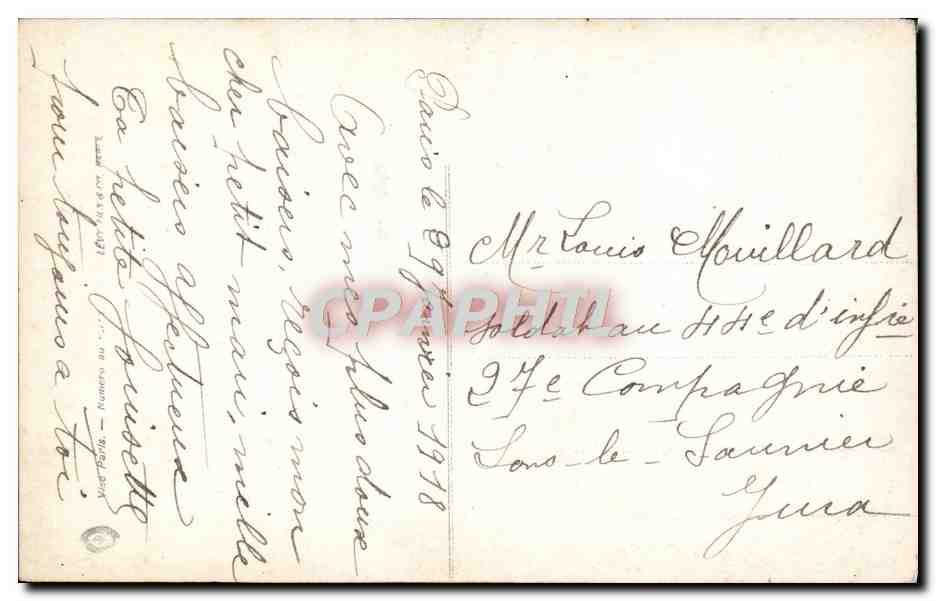 Paris le 29 Janvier 1918
Avec mes plus doux
baisers, reçois mon
cher petit mari, mille
baisers affectueux
Ta petite Louisette
pour toujours a toi
Mr Louis Mouillard
soldat au 44e d'infie
27e Compagnie
Lons-le-Saunier
Jura
CPAPHIL
Paris. — Numéro au